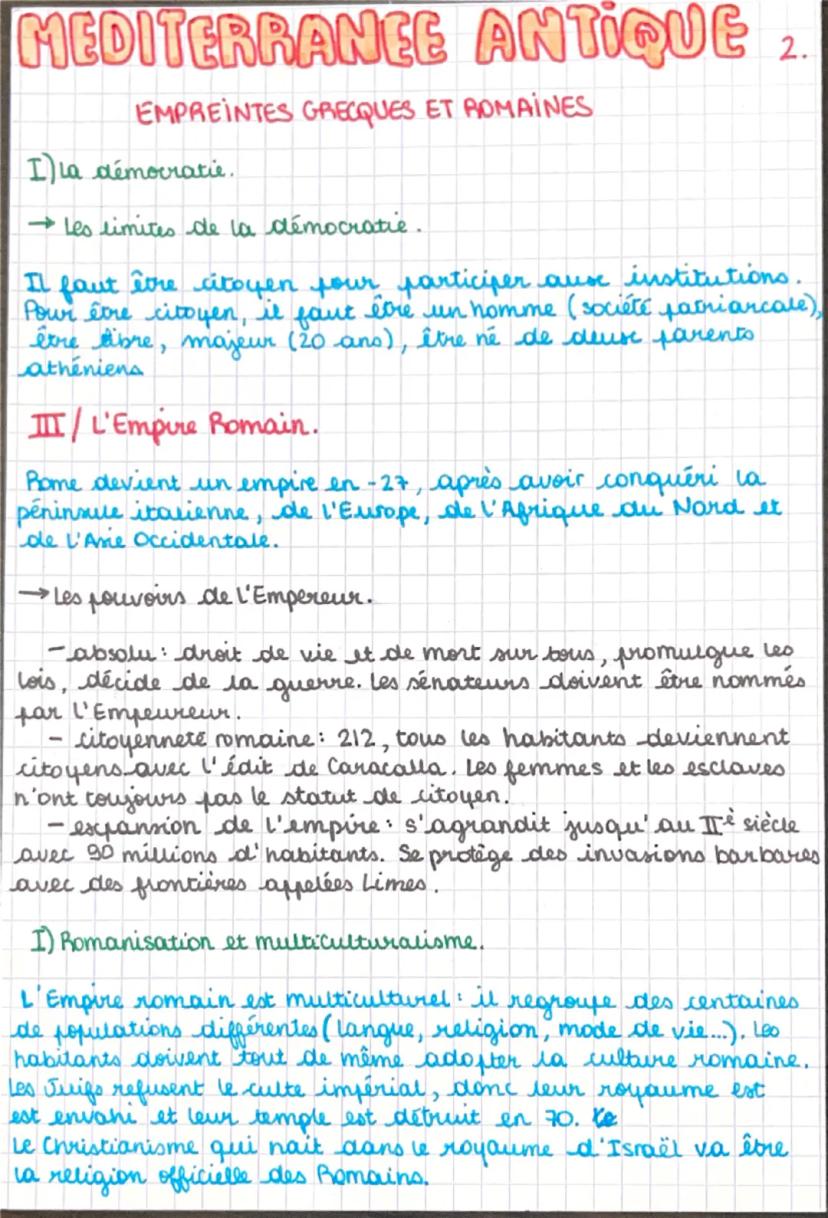 MEDITERRANEE ANTIQUE 2.
EMPREINTES GRECQUES ET ROMAINES
I) la démocratie.
→ Les limites de la démocratie.
Il faut être citoyen pour participer aux institutions.
Pour être citoyen, il faut être un homme (société patriarcale),
être libre, majeur (20 ans), être né de deux parents
athéniens
III / L'Empire Romain.
Rome devient un empire en -27, après avoir conquéri la
péninsule italienne, de l'Europe, de l'Afrique du Nord et
de l'Asie Occidentale.
→ Les pouvoirs de l'Empereur.
- absolu : droit de vie et de mort sur tous, promulgue les
lois, décide de la guerre. Les sénateurs doivent être nommés
par l'Empeureur.
- citoyenneté romaine : 212, tous les habitants deviennent
citoyens avec l'édit de Caracalla. Les femmes et les esclaves
n'ont toujours pas le statut de citoyen.
- expansion de l'empire : s'agrandit jusqu'au IIè siècle
avec 90 millions d'habitants. Se protège des invasions barbares
avec des frontières appelées Limes.
I) Romanisation et multiculturalisme.
L'Empire romain est multiculturel : il regroupe des centaines
de populations différentes (langue, religion, mode de vie...). Les
habitants doivent tout de même adopter la culture romaine.
Les Juifs refusent le culte impérial, donc leur royaume est
est envahi et leur temple est détruit en 70.
Le Christianisme qui nait dans le royaume d'Israël va être
la religion officielle des Romains.